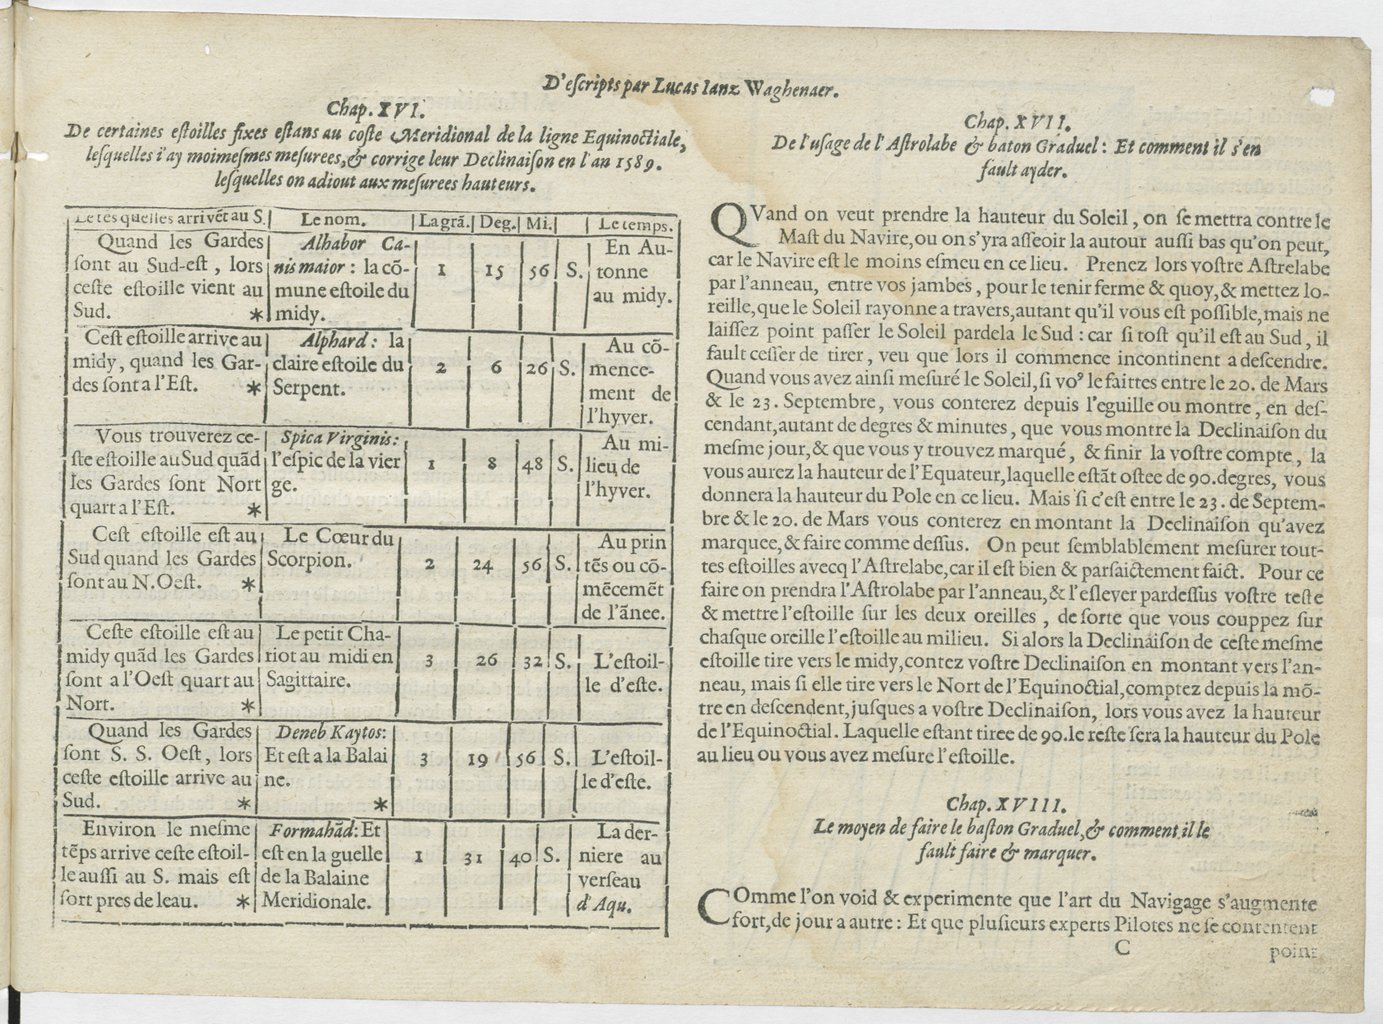 D'eſcripts par Lucas Ianz Waghenaer.
Chap. XVI.
De certaines eſtoilles fixes eſtans au coſte Meridional de la ligne Equinoctiale,
leſquelles i'ay moimeſmes meſurees, & corrige leur Declinaiſon en l'an 1589.
leſquelles on adiout aux meſurees hauteurs.
Le tēs quelles arrivēt au S. Le nom. La grā. Deg. Mi. Le temps.
Quand les Gardes
ſont au Sud-eſt, lors
ceſte eſtoille vient au
Sud. *
Alhabor Ca-
nis maior : la cō-
mune eſtoile du
midy.
1 15 56 S.
En Au-
tonne
au midy.
Ceſt eſtoille arrive au
midy, quand les Gar-
des ſont a l'Eſt. *
Alphard : la
claire eſtoile du
Serpent.
2 6 26 S.
Au cō-
mence-
ment de
l'hyver.
Vous trouverez ce-
ſte eſtoille au Sud quād
les Gardes ſont Nort
quart a l'Eſt. *
Spica Virginis:
l'eſpic de la vier
ge.
1 8 48 S.
Au mi-
lieu de
l'hyver.
Ceſt eſtoille eſt au
Sud quand les Gardes
ſont au N. Oeſt. *
Le Cœur du
Scorpion.
2 24 56 S.
Au prin
tēs ou cō-
mēcemēt
de l'ānee.
Ceſte eſtoille eſt au
midy quād les Gardes
ſont a l'Oeſt quart au
Nort. *
Le petit Cha-
riot au midi en
Sagittaire.
3 26 32 S.
L'eſtoil-
le d'eſte.
Quand les Gardes
ſont S. S. Oeſt, lors
ceſte eſtoille arrive au
Sud. *
Deneb Kaytos:
Et eſt a la Balai
ne. *
3 19 56 S.
L'eſtoil-
le d'eſte.
Environ le meſme
tēps arrive ceſte eſtoil-
le auſſi au S. mais eſt
ſort pres de leau. *
Formahād: Et
eſt en la guelle
de la Balaine
Meridionale.
1 31 40 S.
La der-
niere au
verſeau
d'Aqu.
Chap. XVII.
De l'uſage de l'Aſtrolabe & baton Graduel: Et comment il s'en
fault ayder.
QVand on veut prendre la hauteur du Soleil, on ſe mettra contre le
Maſt du Navire, ou on s'yra aſſeoir la autour auſſi bas qu'on peut,
car le Navire eſt le moins eſmeu en ce lieu. Prenez lors voſtre Aſtrelabe
par l'anneau, entre vos jambes, pour le tenir ferme & quoy, & mettez lo-
reille, que le Soleil rayonne a travers, autant qu'il vous eſt poſſible, mais ne
laiſſez point paſſer le Soleil pardela le Sud : car ſi toſt qu'il eſt au Sud, il
fault ceſſer de tirer, veu que lors il commence incontinent a deſcendre.
Quand vous avez ainſi meſuré le Soleil, ſi vo⁹ le faittes entre le 20. de Mars
& le 23. Septembre, vous conterez depuis l'eguille ou montre, en deſ-
cendant, autant de degres & minutes, que vous montre la Declinaiſon du
meſme jour, & que vous y trouvez marqué, & finir la voſtre compte, la
vous aurez la hauteur de l'Equateur, laquelle eſtāt oſtee de 90. degres, vous
donnera la hauteur du Pole en ce lieu. Mais ſi c'eſt entre le 23. de Septem-
bre & le 20. de Mars vous conterez en montant la Declinaiſon qu'avez
marquee, & faire comme deſſus. On peut ſemblablement meſurer tout-
tes eſtoilles avecq l'Aſtrelabe, car il eſt bien & parfaictement faict. Pour ce
faire on prendra l'Aſtrolabe par l'anneau, & l'eſlever pardeſſus voſtre teſte
& mettre l'eſtoille ſur les deux oreilles, de ſorte que vous couppez ſur
chaſque oreille l'eſtoille au milieu. Si alors la Declinaiſon de ceſte meſme
eſtoille tire vers le midy, contez voſtre Declinaiſon en montant vers l'an-
neau, mais ſi elle tire vers le Nort de l'Equinoctial, comptez depuis la mō-
tre en deſcendent, juſques a voſtre Declinaiſon, lors vous avez la hauteur
de l'Equinoctial. Laquelle eſtant tiree de 90. le reſte ſera la hauteur du Pole
au lieu ou vous avez meſure l'eſtoille.
Chap. XVIII.
Le moyen de faire le baſton Graduel, & comment il le
fault faire & marquer.
COmme l'on void & experimente que l'art du Navigage s'augmente
fort, de jour a autre : Et que pluſieurs experts Pilotes ne ſe contentent
C point